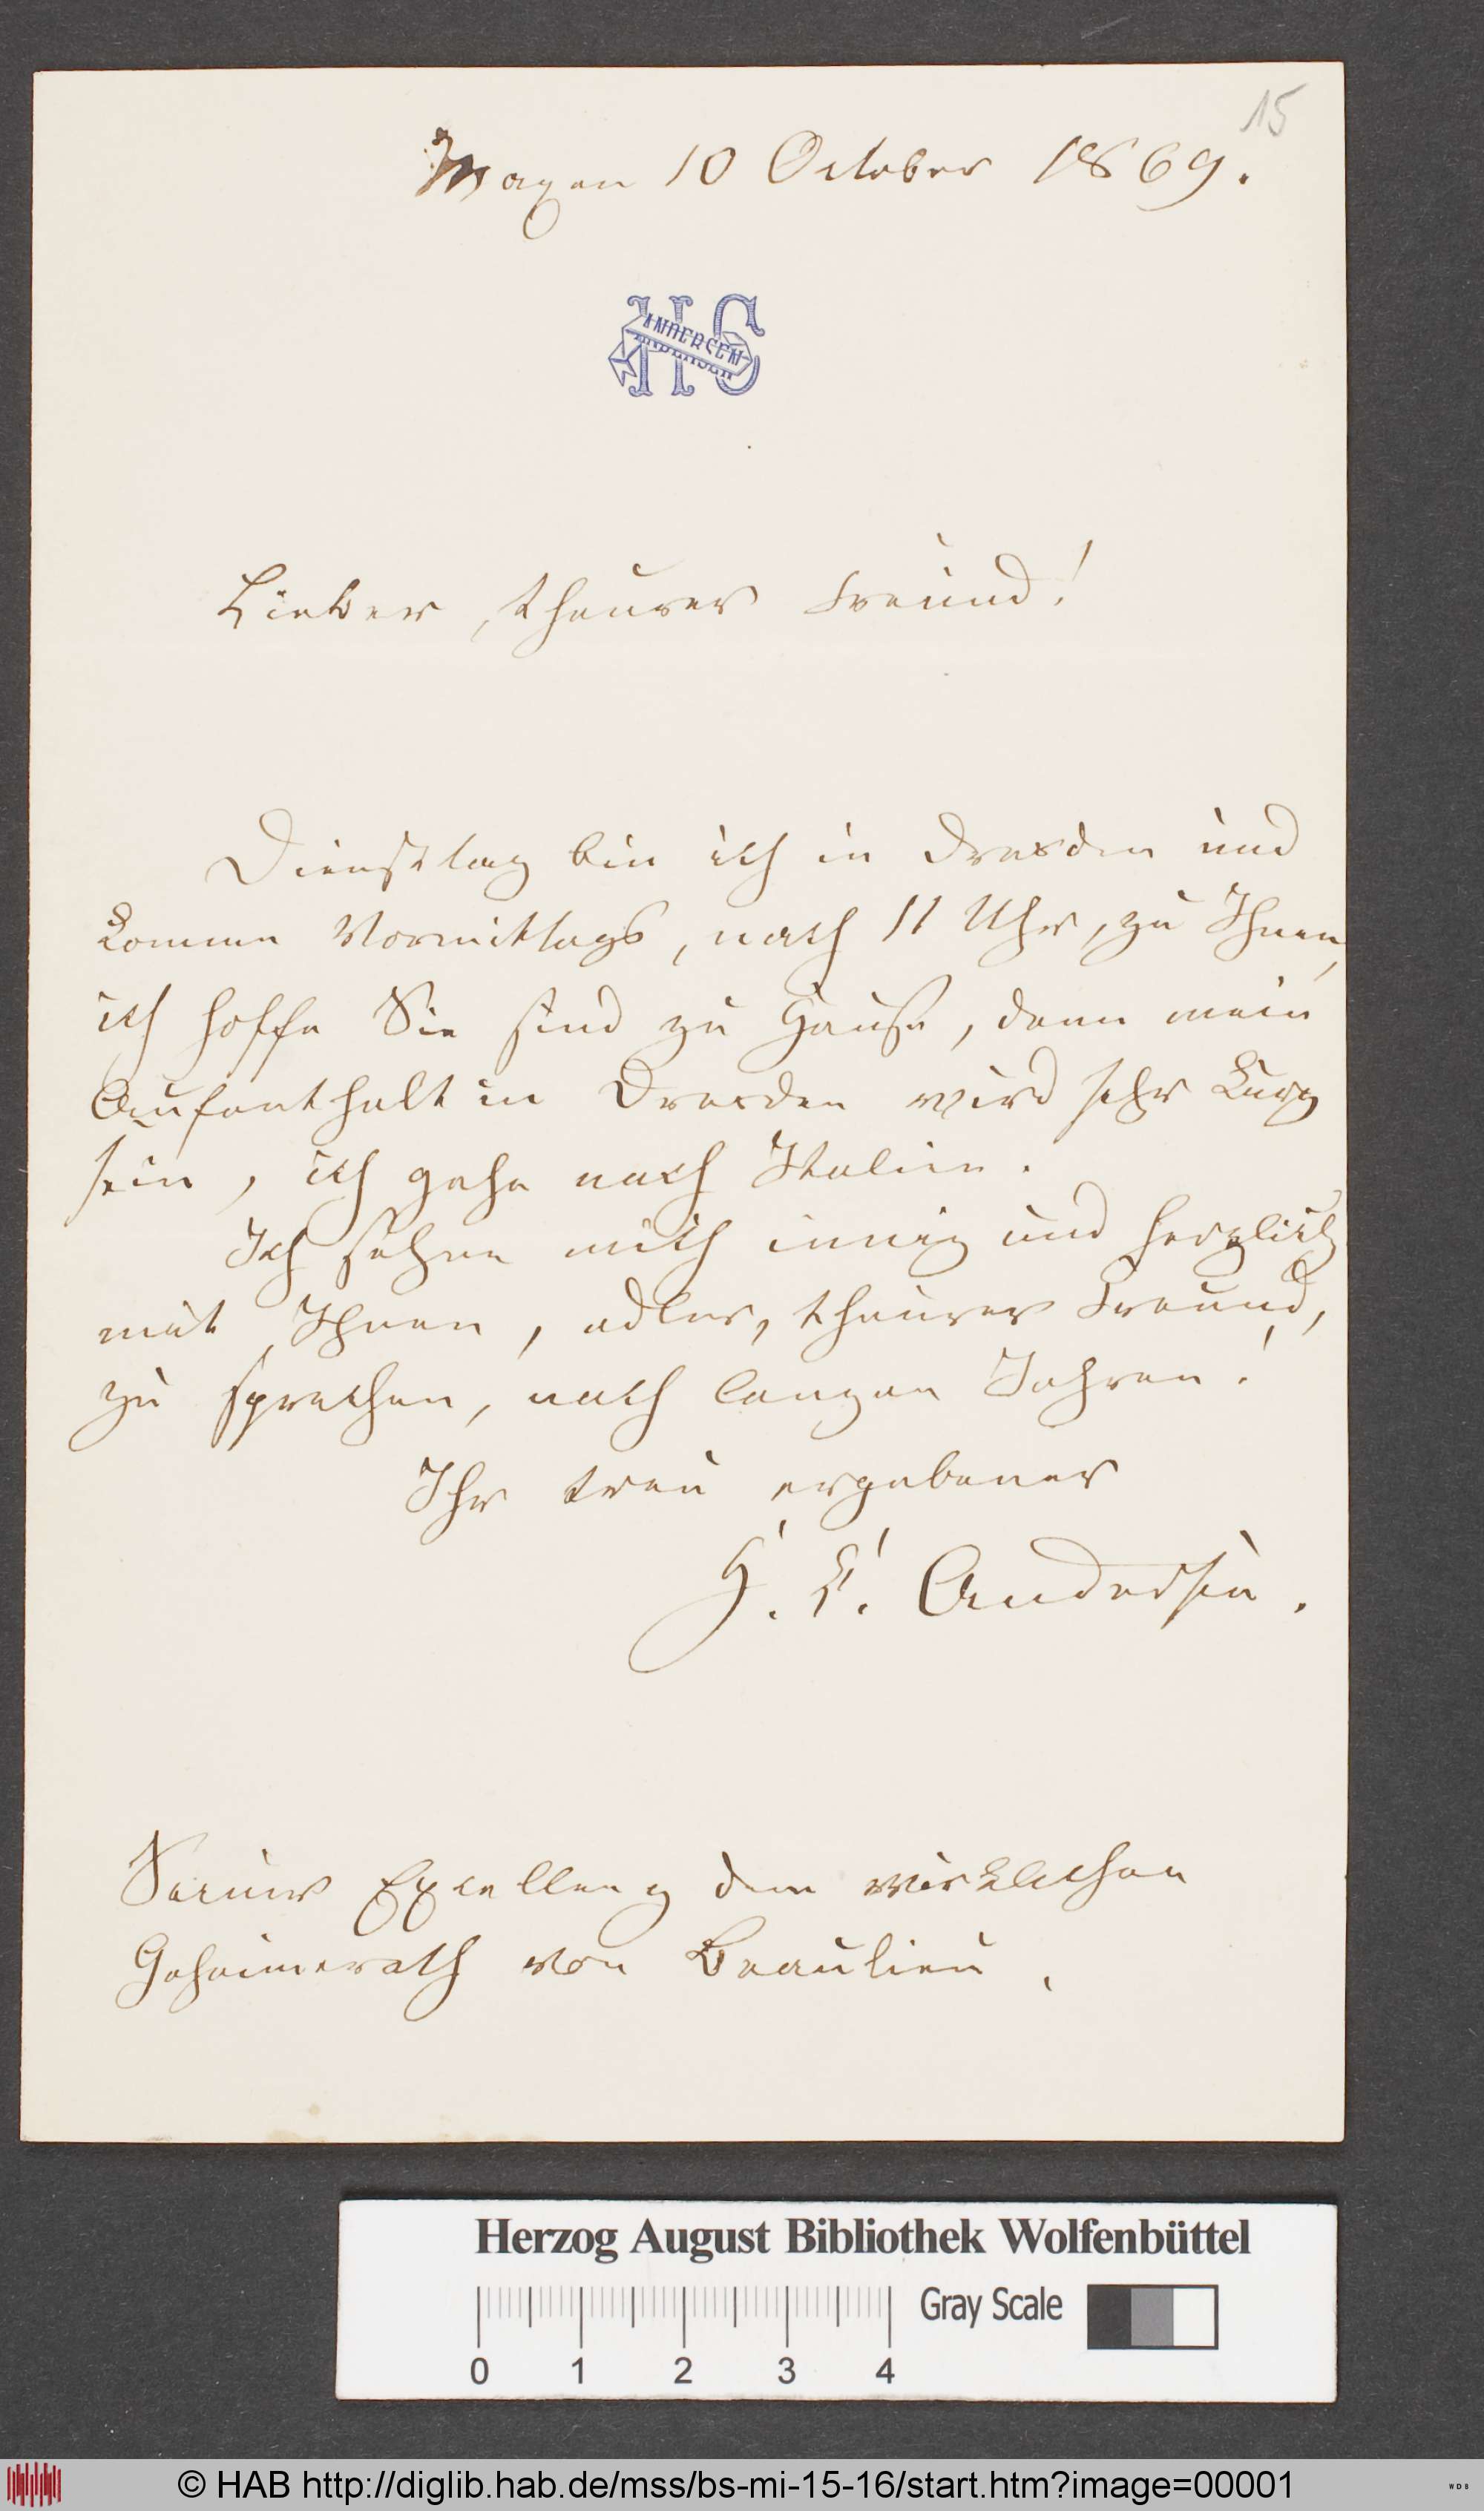 15
Maxen 10 October 1869.
HS
ANDERSEN
Lieber, theurer Freund!
Dienstag bin ich in Dresden und
komme Vormittags, nach 11 Uhr, zu Ihnen,
ich hoffe Sie sind zu Hause, denn mein
Aufenthalt in Dresden wird sehr kurz
sein, ich gehe nach Italien.
Ich sehne mich innig und herzlich
mit Ihnen, edler, theurer Freund,
zu sprechen, nach langen Jahren!
Ihr treu ergebener
H. C. Andersen.
Seiner Excellenz dem wirklichen
Geheimerath von Beaulieu.
Herzog August Bibliothek Wolfenbüttel
Gray Scale
0 1 2 3 4
© HAB http://diglib.hab.de/mss/bs-mi-15-16/start.htm?image=00001
WDB